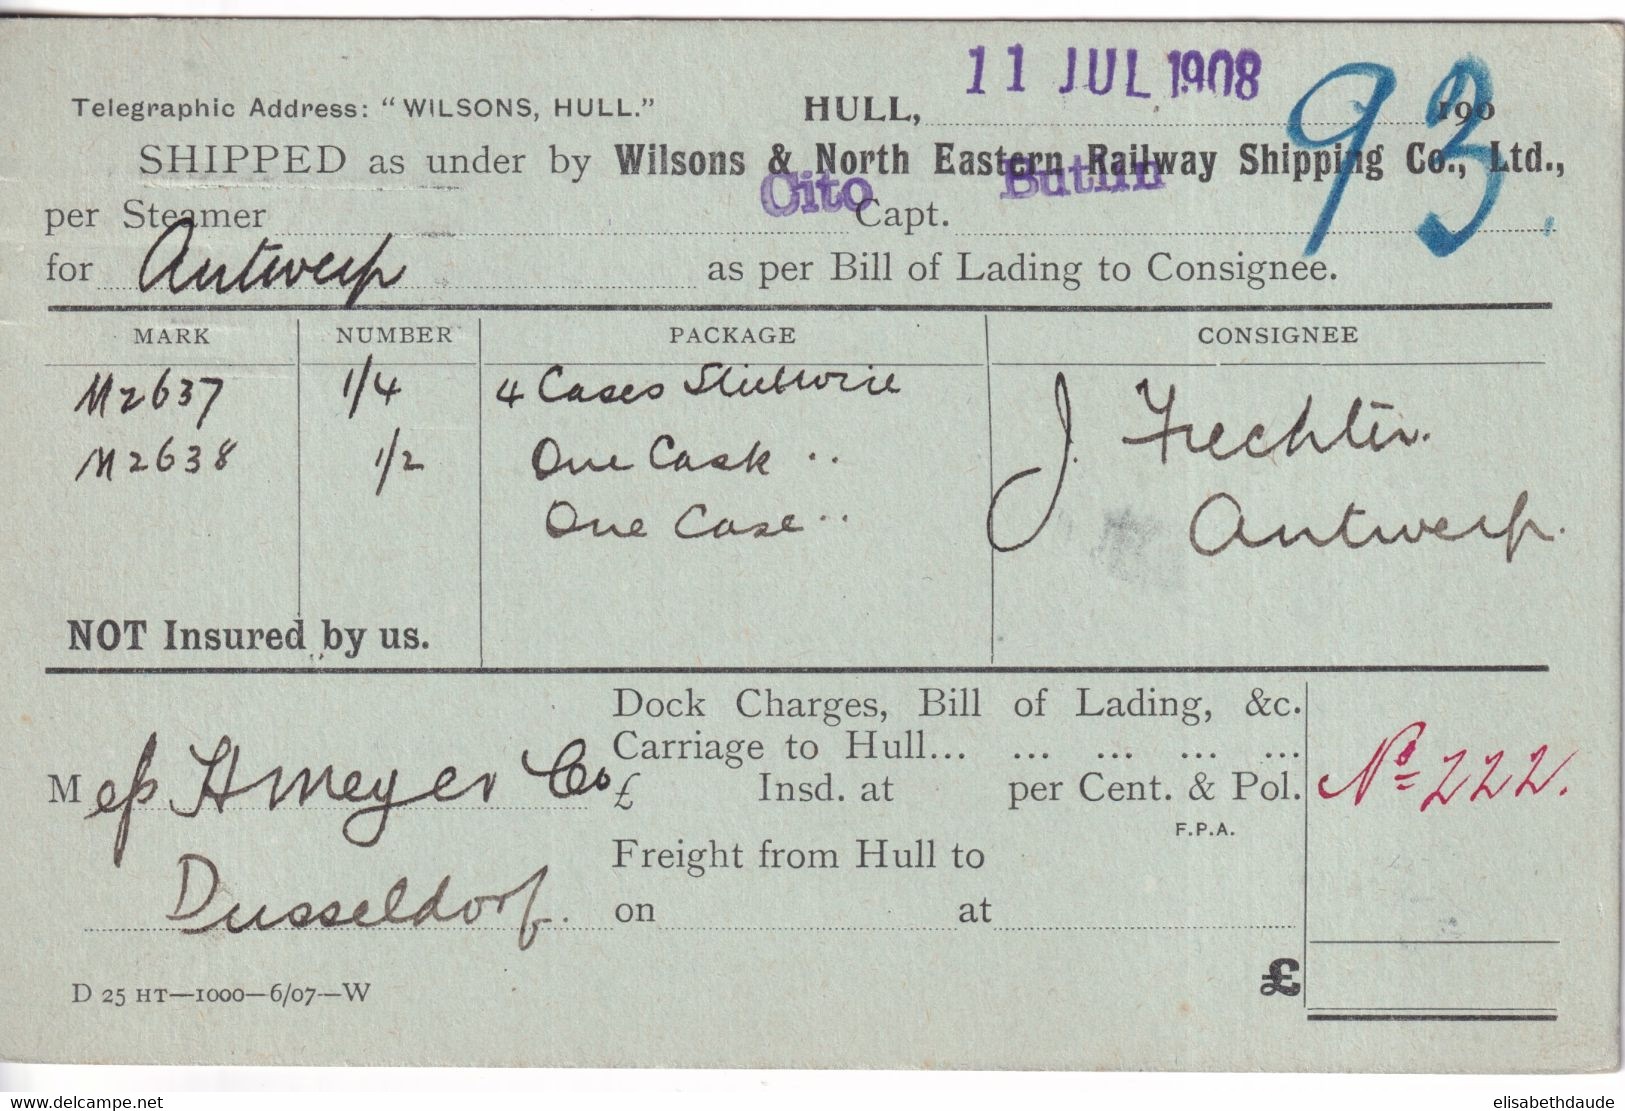 11 JUL 1908
93.
Telegraphic Address: "WILSONS, HULL." HULL, 190
SHIPPED as under by Wilsons & North Eastern Railway Shipping Co., Ltd.,
per Steamer Cito Capt. Butlin
for Antwerp as per Bill of Lading to Consignee.
MARK NUMBER PACKAGE CONSIGNEE
M2637 1/4 4 Cases J. Fechter.
M2638 1/2 One Cask ..
One Case .. Antwerp.
NOT Insured by us.
Dock Charges, Bill of Lading, &c.
Carriage to Hull... ... ... ... ...
Mess H Meyer Co £ Insd. at per Cent. & Pol. No 222.
F.P.A.
Freight from Hull to
Dusseldorf. on at
£
D 25 HT—1000—6/07—W
www.delcampe.net elisabethdaude